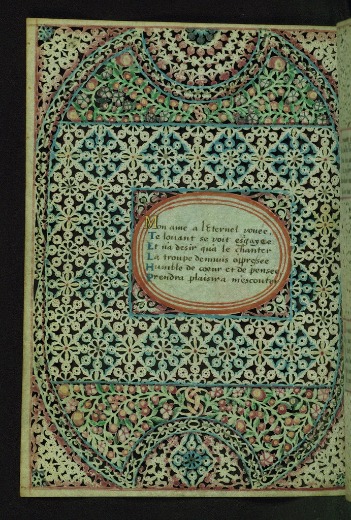 Mon ame a lEternel vouee,
Te louant se voit esgayee
Et na desir qua le chanter
La troupe dennuis opresee
Humble de cœur et de pensee
Prendra plaisir a mescouter